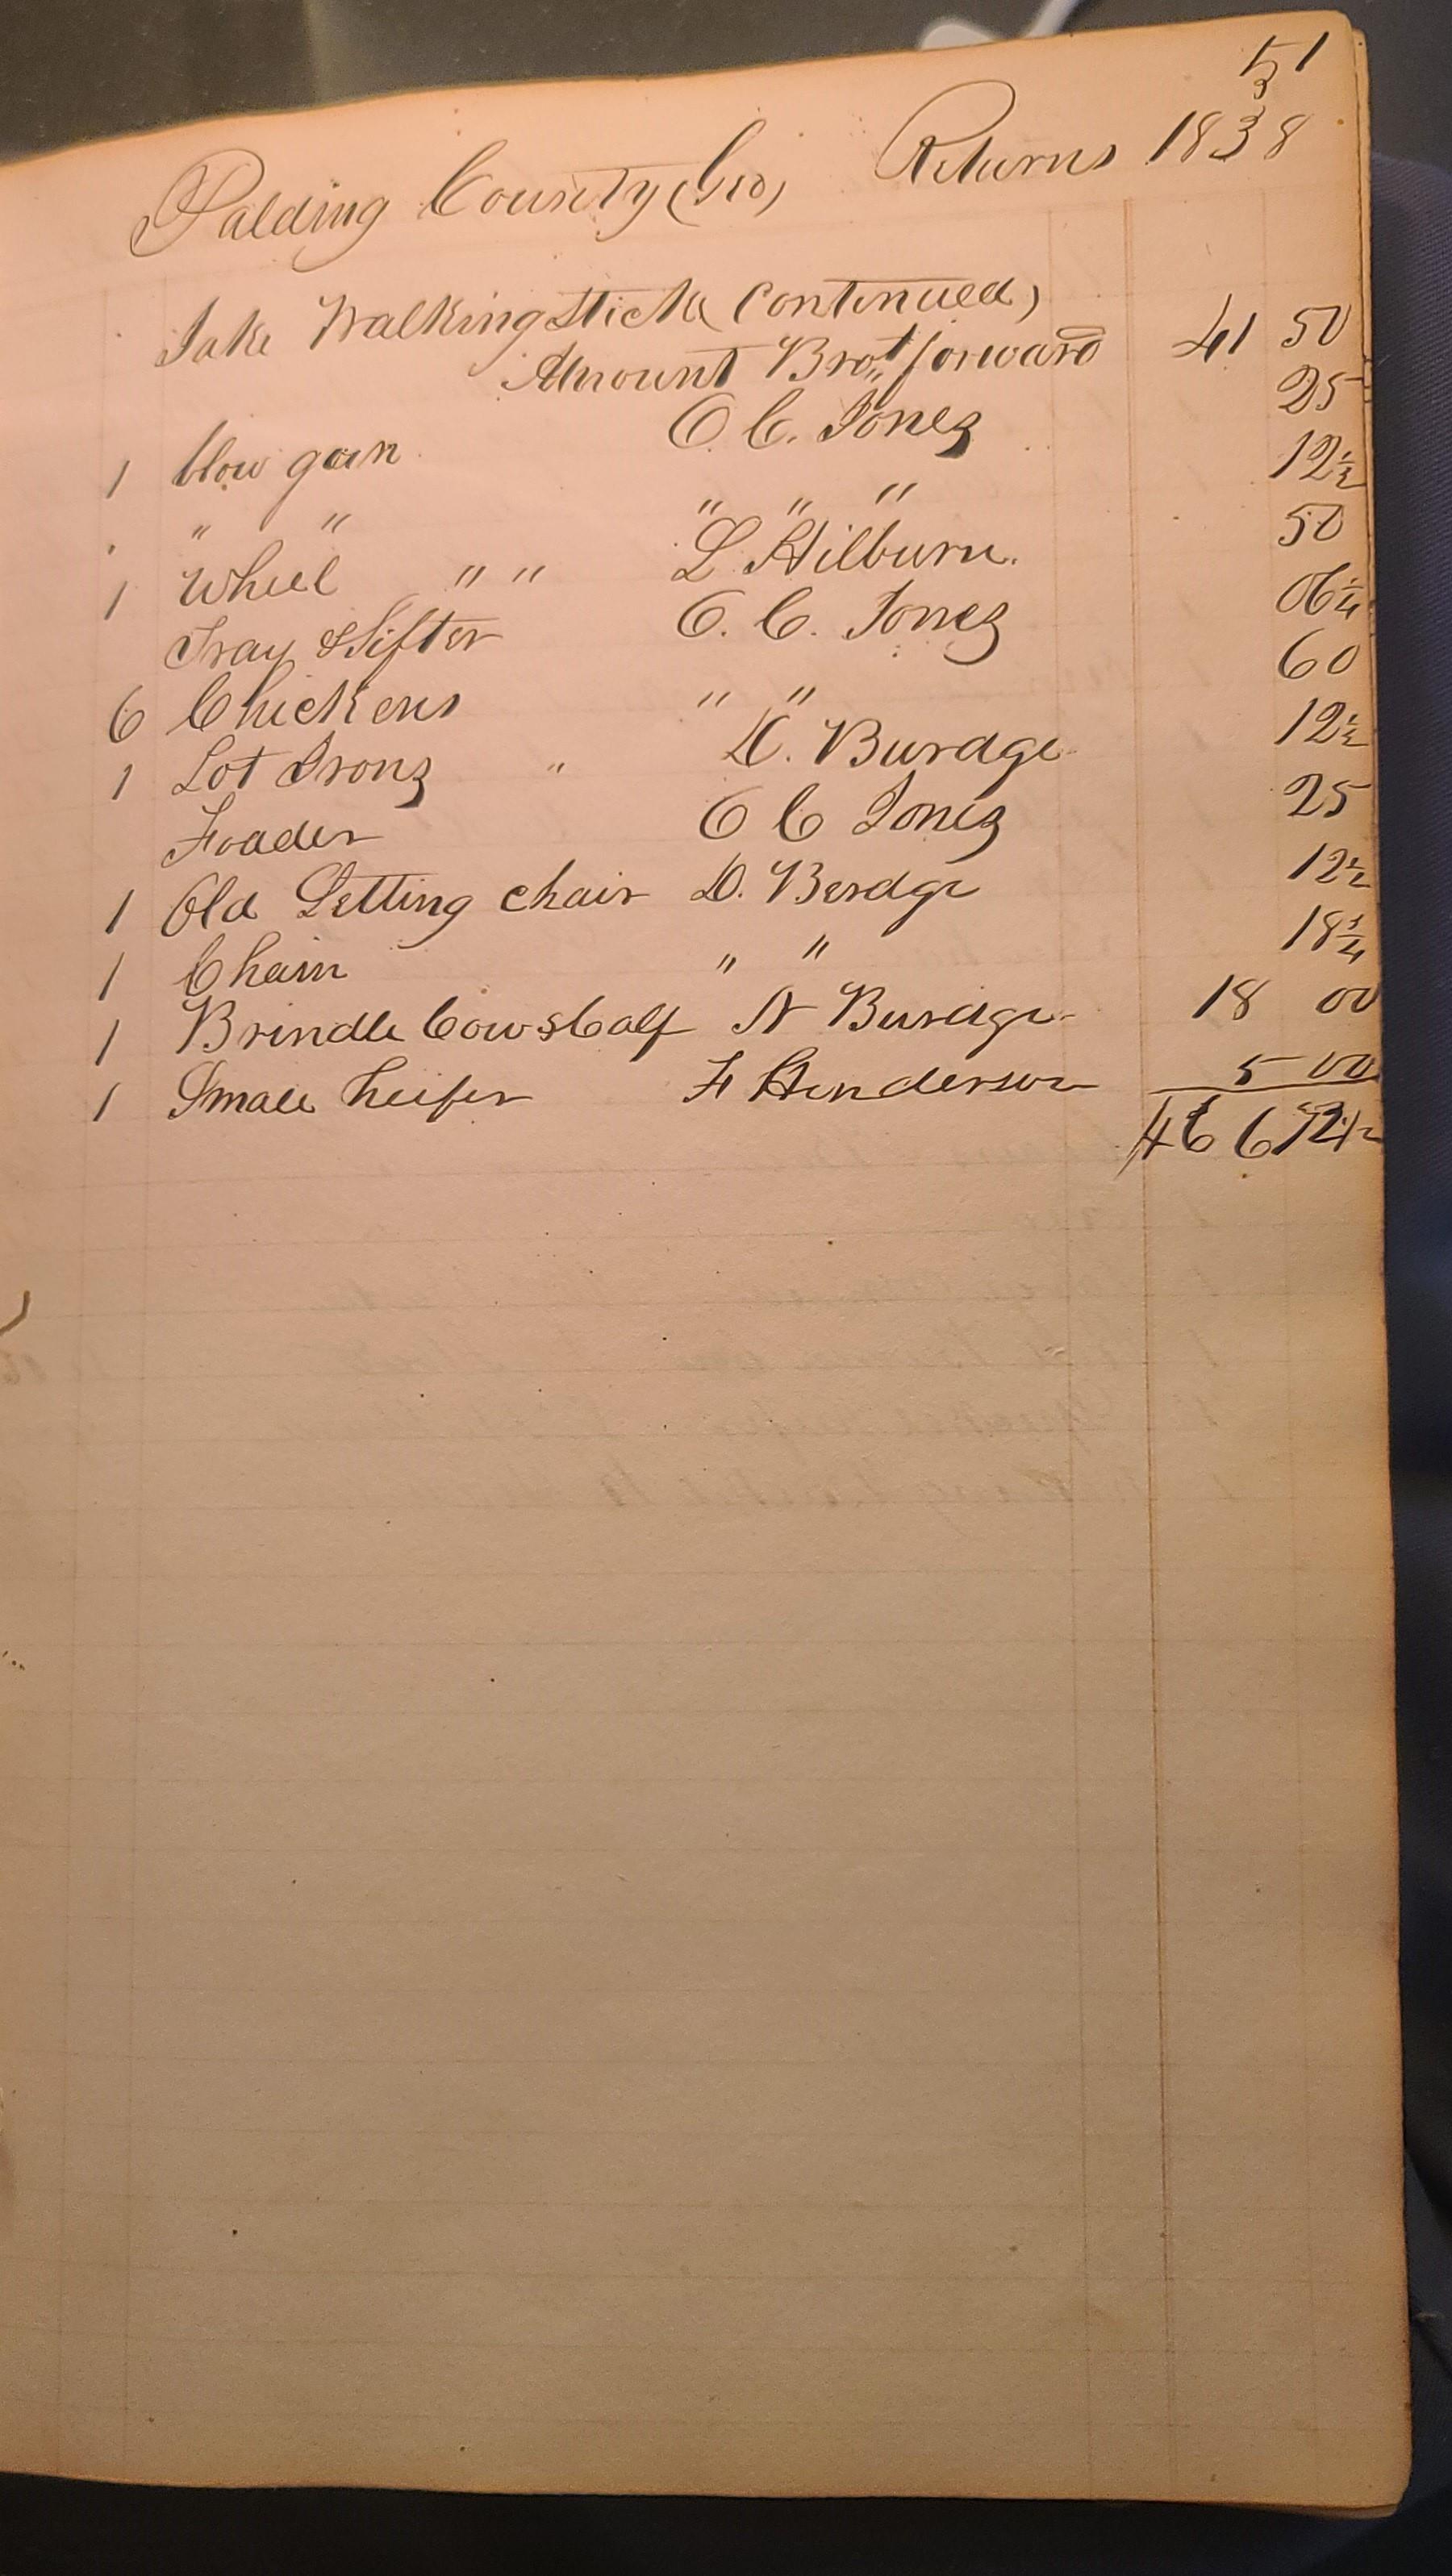 51
3
Palding County (Geo) Returns 1838
Jake Walkingstick (Continued)
Amount Brot forward 41 50
1 blow gun O. C. Jones 25
" " " " " 12½
1 Wheel " " L Hilburn. 50
Tray & Sifter O. C. Jones 06¼
6 Chickens " " 60
1 Lot Irons " D. Burdge 12½
Foader O C Jones 25
1 Old Setting chair D. Berdge 12½
1 Chain " " 18¾
1 Brindle Cow & Calf N Burdge 18 00
1 Small heifer F Henderson 5 00